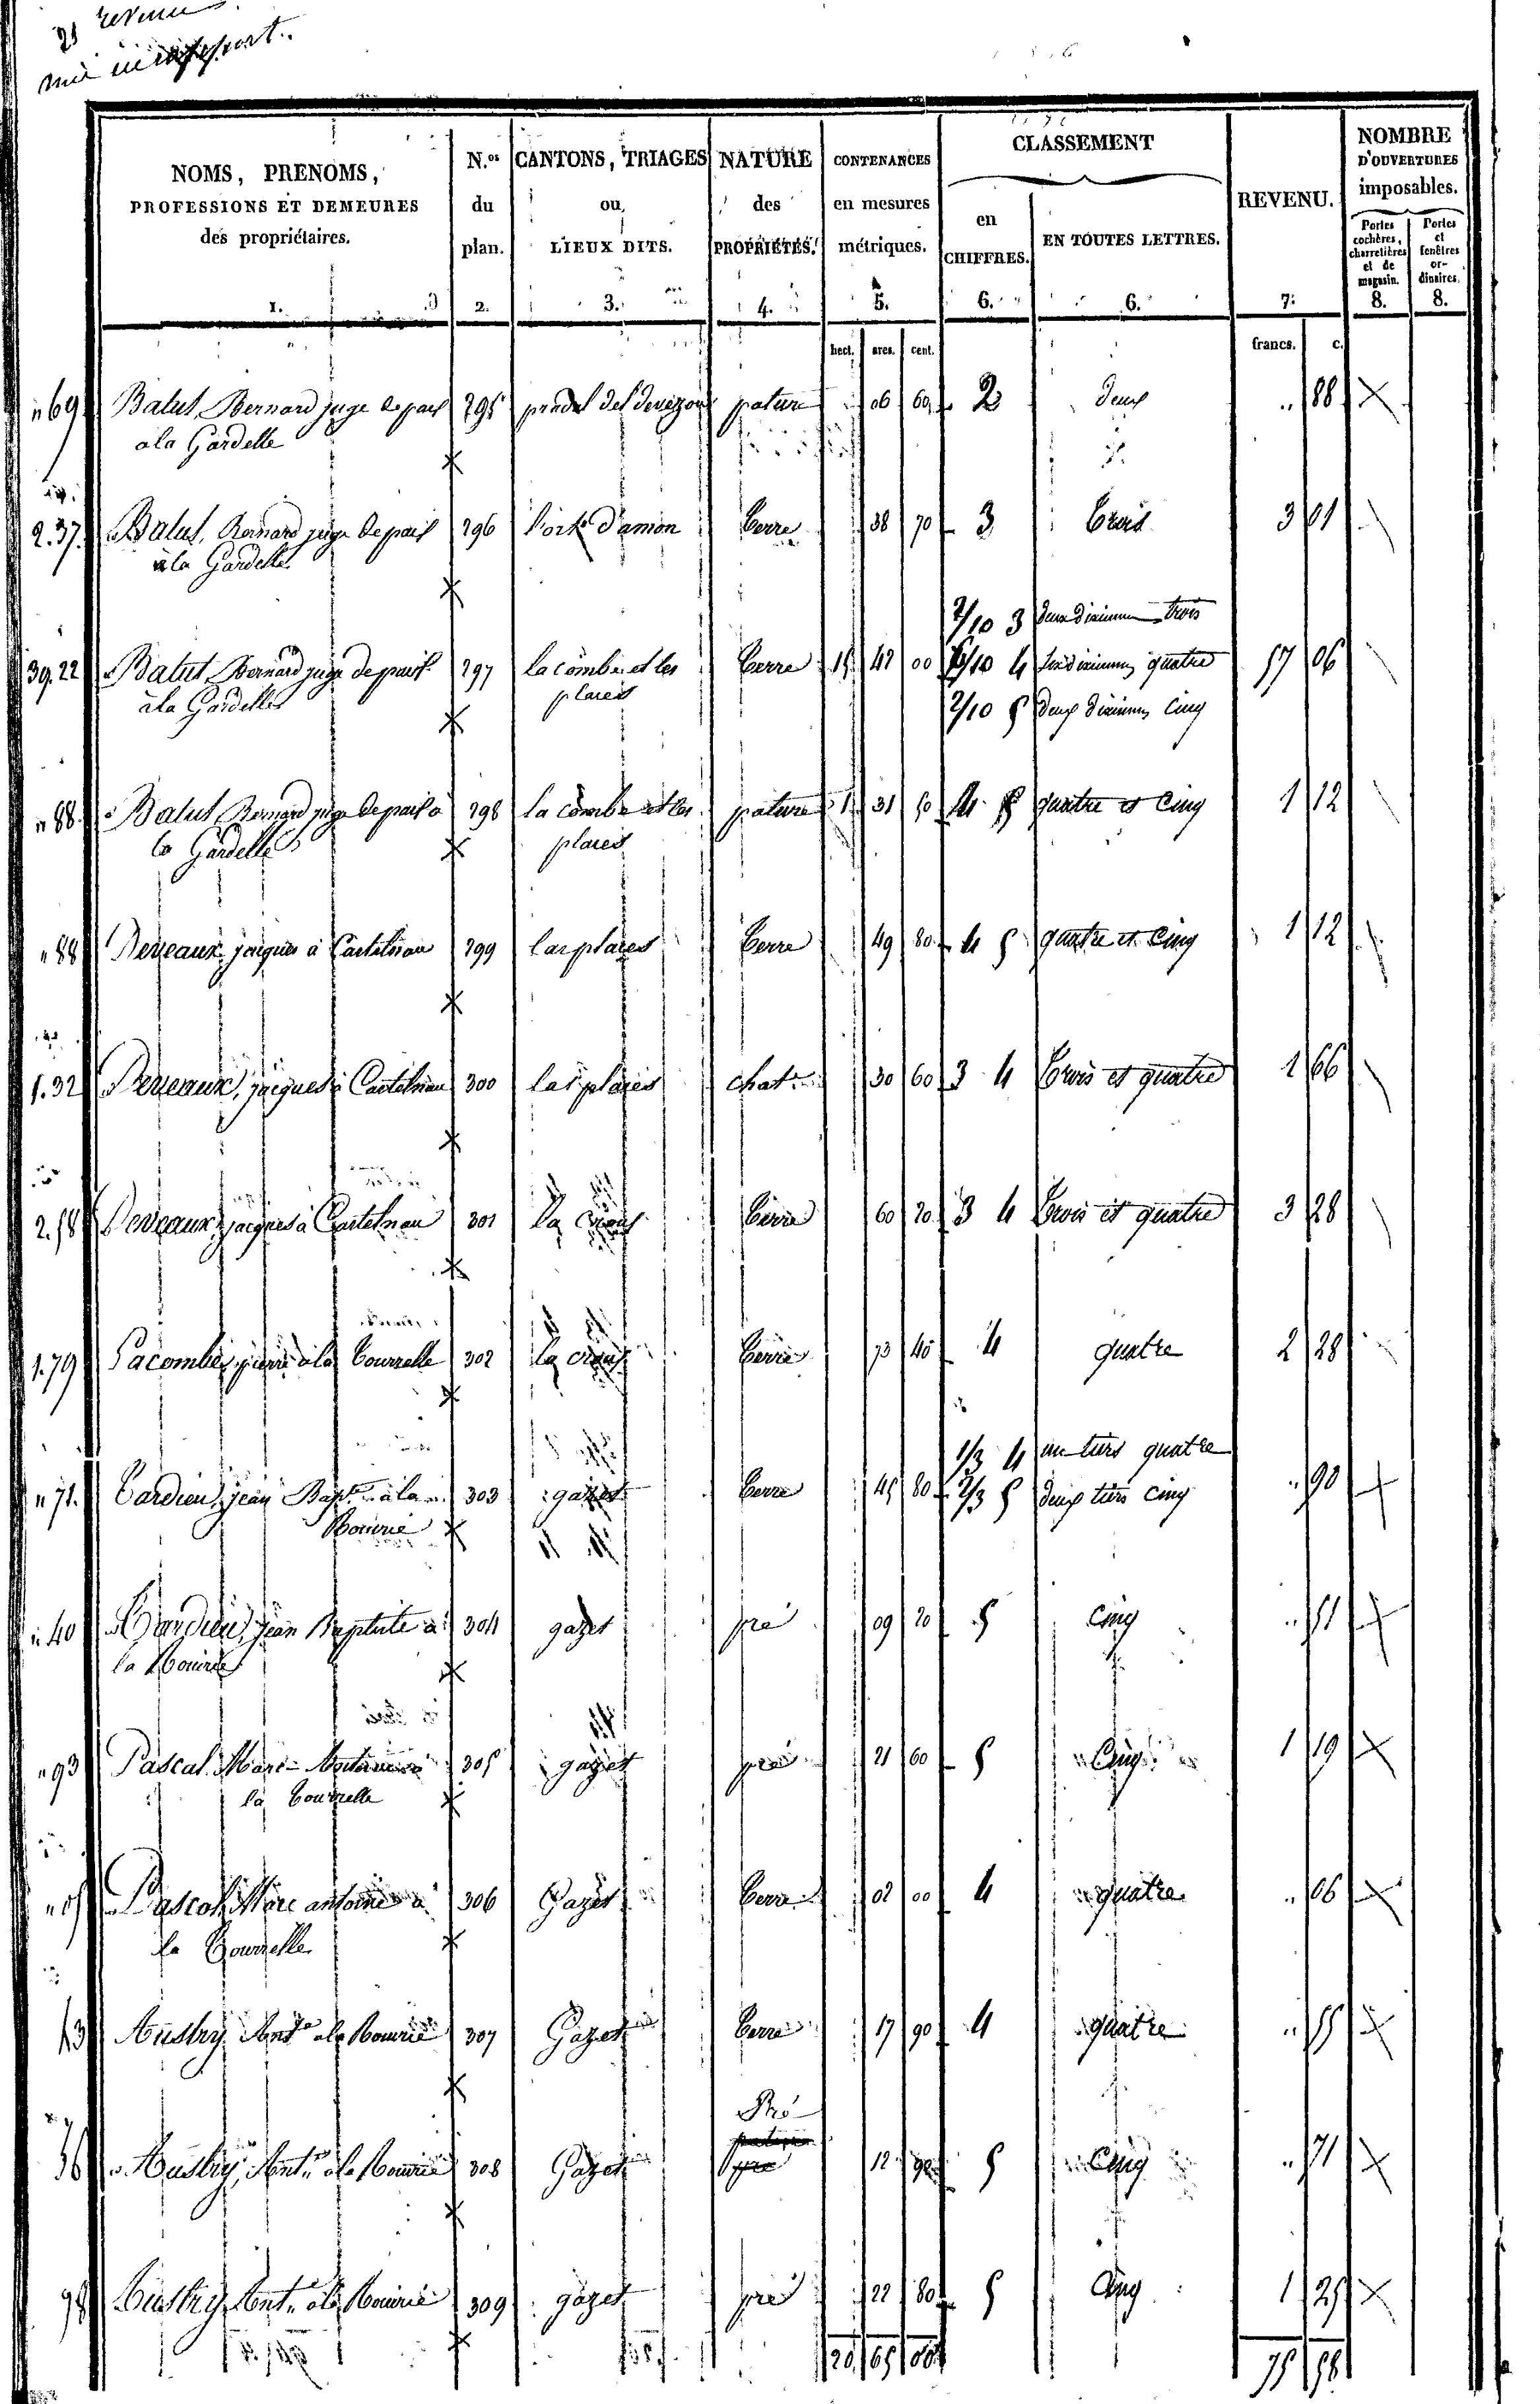 revenu
NOMS, PRENOMS, PROFESSIONS ET DEMEURES des propriétaires. 1.
N.os du plan. 2.
CANTONS, TRIAGES ou LIEUX DITS. 3.
NATURE des PROPRIÉTÉS. 4.
CONTENANCES en mesures métriques. 5.
CLASSEMENT
en CHIFFRES. 6.
EN TOUTES LETTRES. 6.
REVENU. 7.
NOMBRE D'OUVERTURES imposables.
Portes cochères, charretières et de magasin. 8.
Portes et fenêtres ordinaires. 8.
hect. ares. cent. francs. c.
"69 Batut Bernard juge de paix 295 pature 06 60 2 deux " 88
a la Gardelle
2.37 Batut, Bernard juge de paix 296 l'ort d'amon terre 38 70 3 trois 3 01
à la Gardelle
2/10 3 deux dixiemes trois
39.22 Batut Bernard juge de paix 297 la combe et las terre 15 42 00 6/10 4 six dixiemes quatre 57 06
à la Gardelle places
2/10 5 deux dixiemes cinq
"88 Batut Bernard juge de paix a 298 la combe et las pature 1 31 50 4 5 quatre et cinq 1 12
la Gardelle places
"88 Deveaux jacques à Castelnau 299 las places terre 49 80 4 5 quatre et cinq 1 12
1.32 Deveaux, jacques à Castelnau 300 las places chat. 30 60 3 4 trois et quatre 1 66
2.58 Deveaux, jacques à Castelnau 301 la croux terre 60 20 3 4 trois et quatre 3 28
1.79 Lacombe, pierre à la tourrelle 302 la croux terre 73 40 4 quatre 2 28
1/3 4 un tiers quatre
"71. Tardieu, jean Bapt. à la 303 gazet terre 45 80 2/3 5 deux tiers cinq " 90
Bourie
"40 Tardieu, jean Baptiste a 304 gazet pré 09 20 5 cinq " 51
la Bourie
"93 Pascal Marc-Antoine a 305 gazet pré 21 60 5 cinq 1 19
la tourrelle
Pascal Marc antoine a 306 Gazet terre 02 00 4 quatre " 06
la tourrelle
43 Austry Ant.e a la Bourie 307 Gazet terre 17 90 4 quatre " 55
Pré
56 Austry, Ant.e a la Bourie 308 Gazet pré 12 90 5 cinq " 71
98 Austry, Ant.e a la Bourie 309 gazet pré 22 80 5 cinq 1 25
20 65 00 75 58